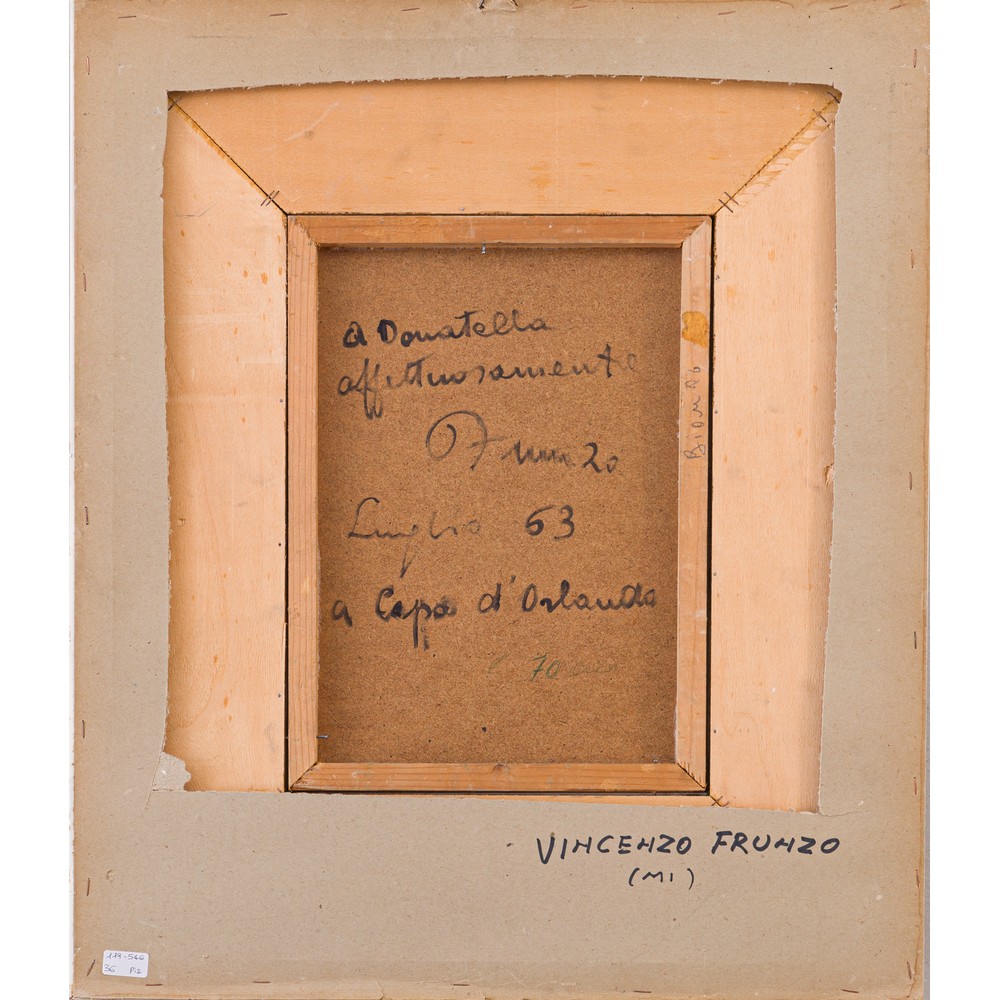 a Donatella
affettuosamente
Frunzo
Luglio 63
a Capo d'Orlando
Bianco
VINCENZO FRUNZO
(MI)
119-546
36 Piz